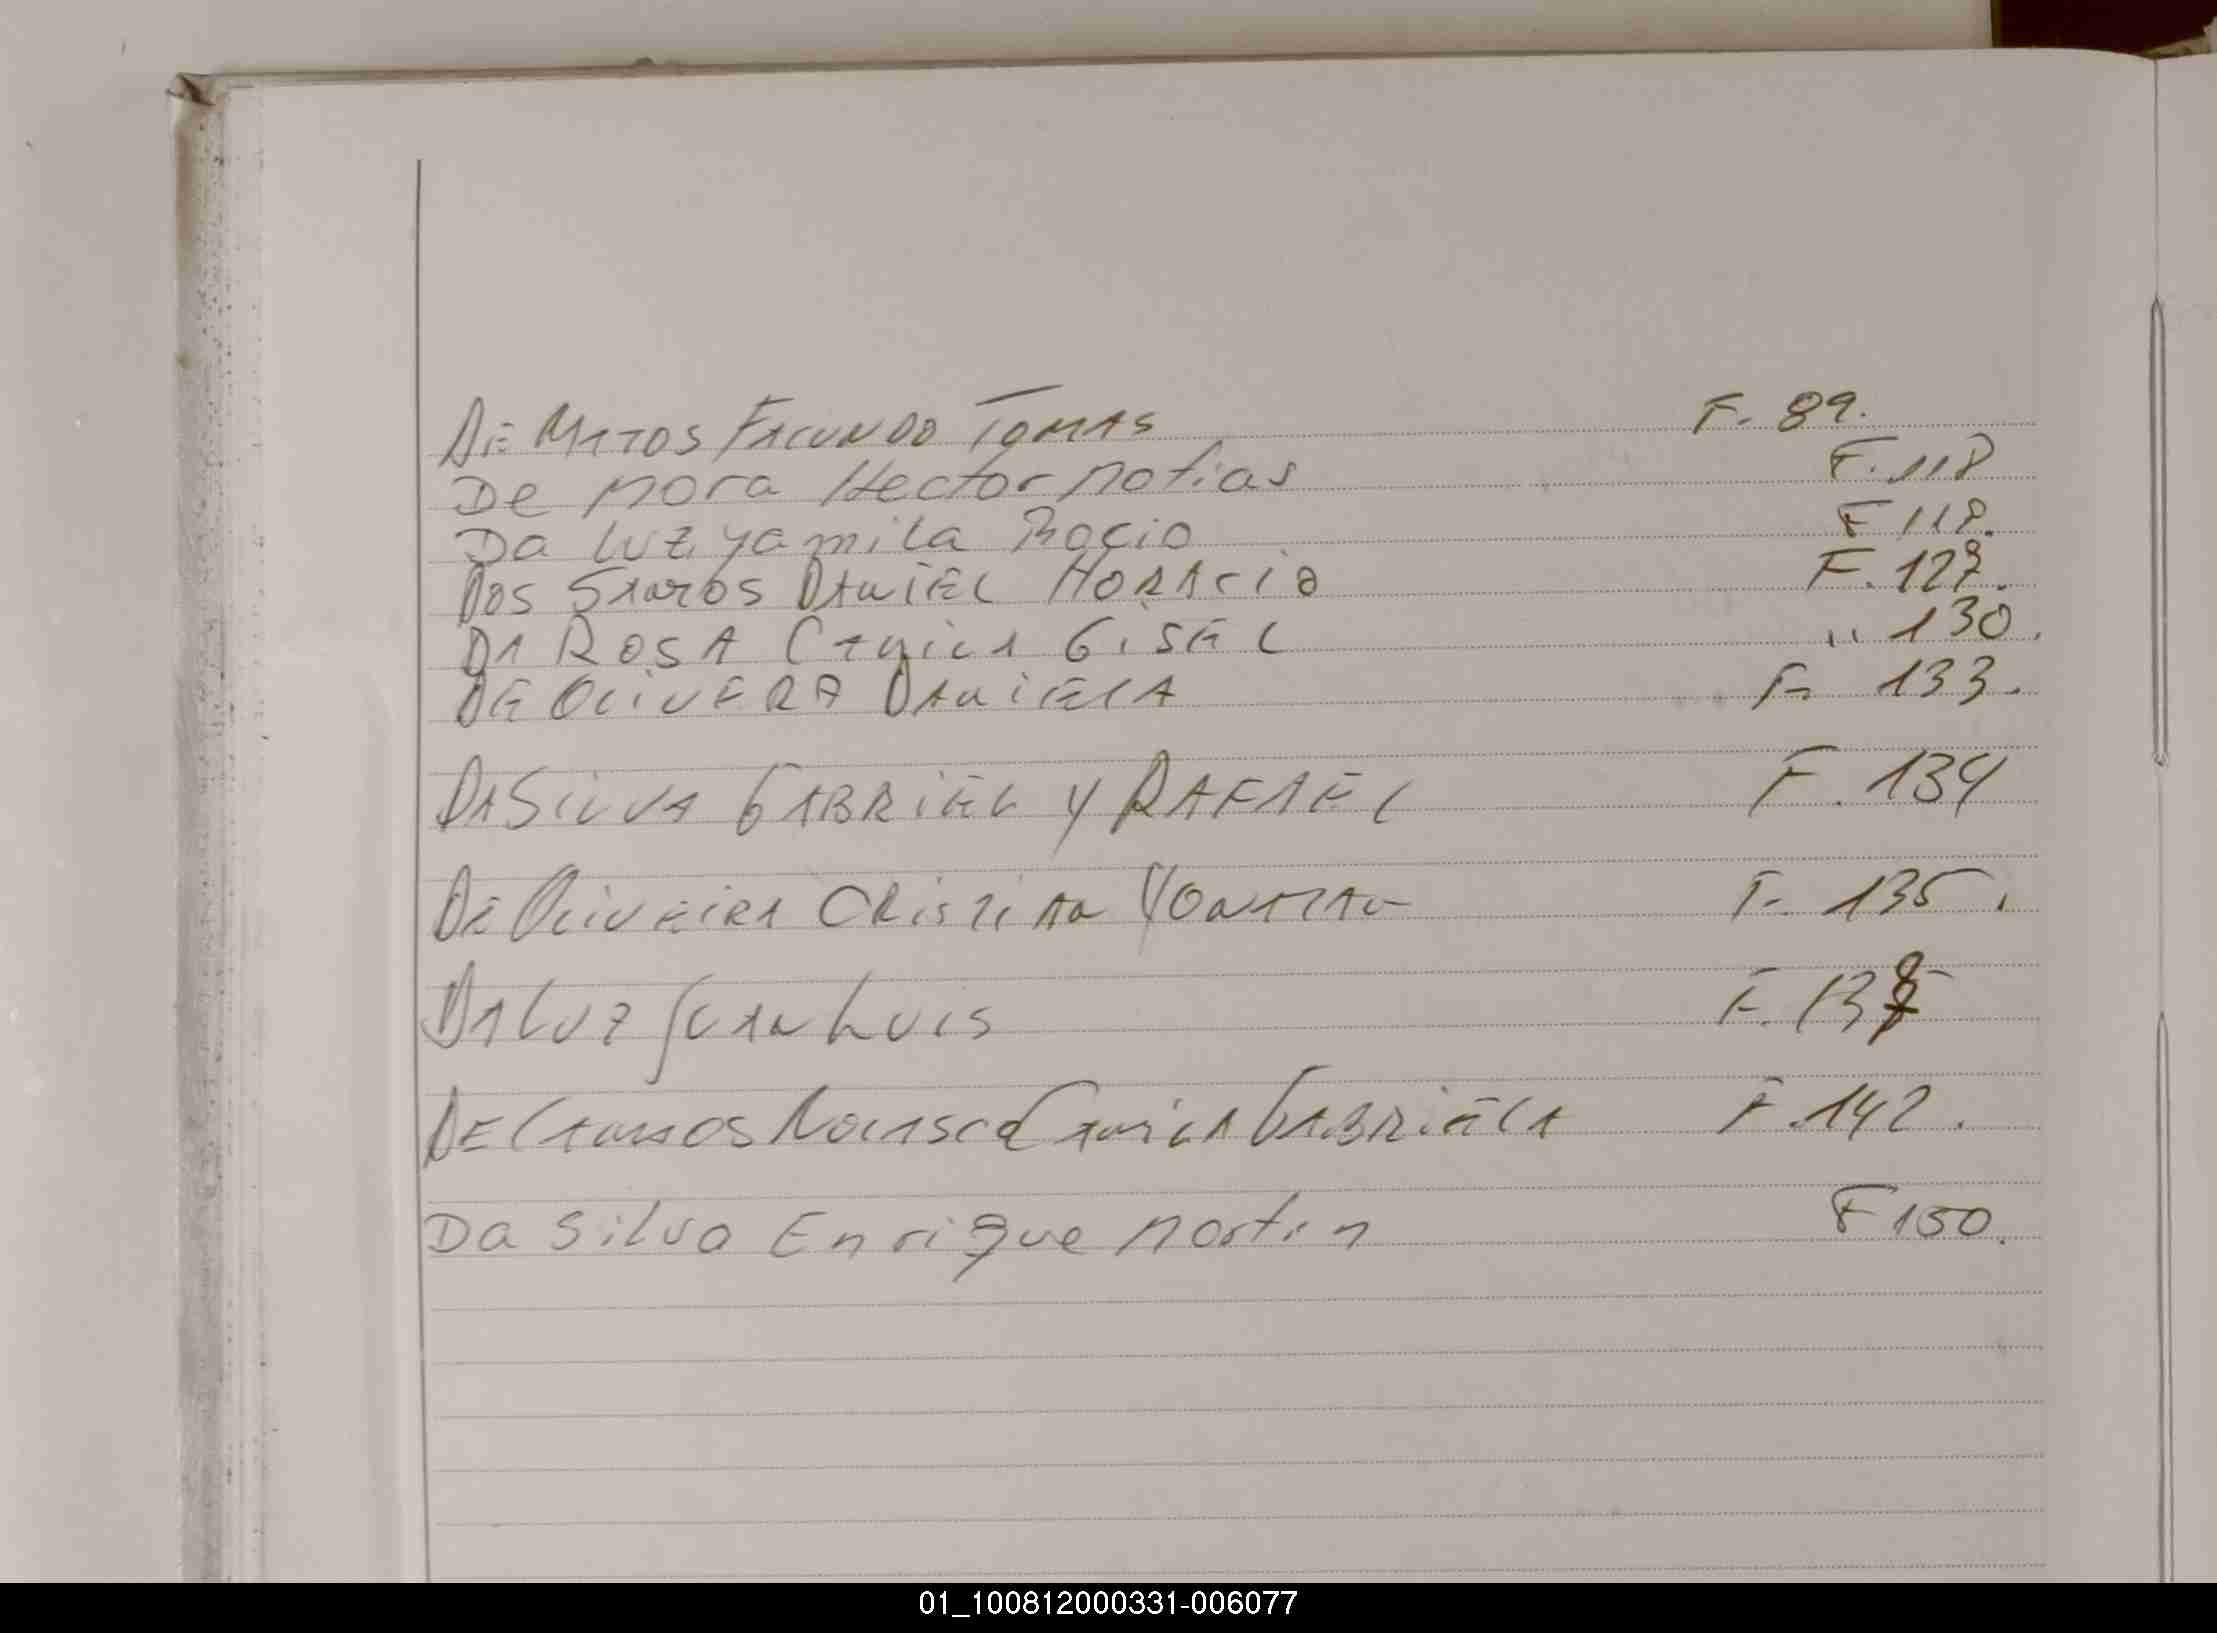 De Matos Facundo Tomas F. 89.
De Mora Hector Matias F. 118
Da luz yamila Rocio F 118.
Dos Santos Daniel Horacio F. 127.
Da Rosa Camila Gisel " 130.
De Olivera Daniela F. 133.
Da Silva Gabriel y Rafael F. 134
De Oliveira Cristian Yonatan F. 135.
Da Luz Juan Luis F. 138
De Campos Camila Gabriela F. 142.
Da Silva Enrique Martin F 150.
01_100812000331-006077